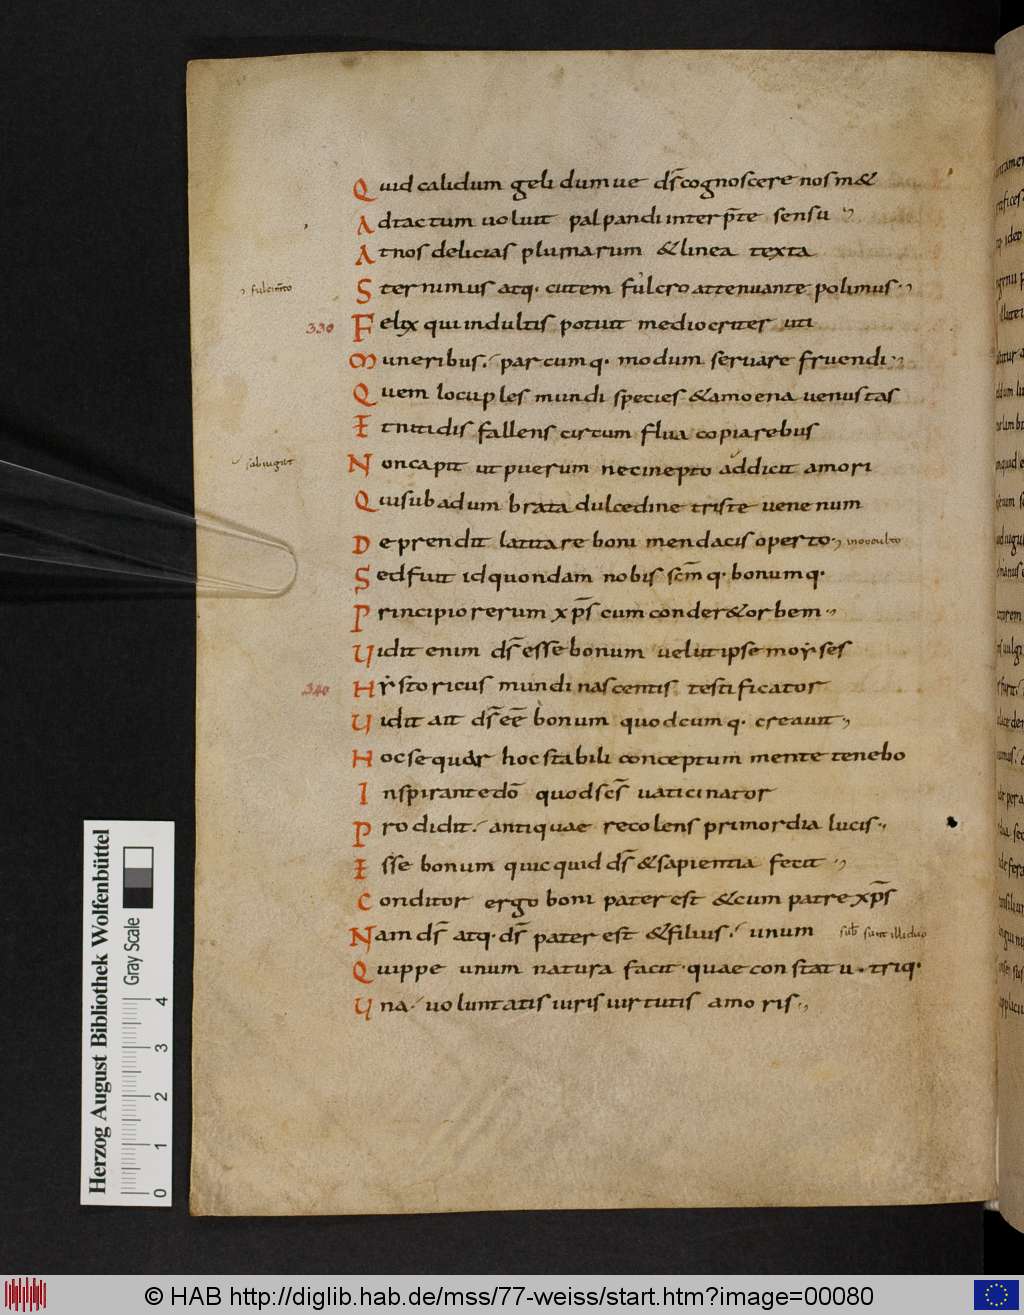 Quid calidum gelidumve ds̄ cognoscere nos m&
Ad tactum voluit palpandi interp̄te sensu
At nos delicias plumarum & linea texta
Sternimus atq· cutem fulcro attenuante polimus
330 Felix qui indultis potuit mediocriter uti
Muneribus parcumq· modum servare fruendi
Quem locuples mundi species & amoena venustas
Et nitidis fallens circum flua copia rebus
Non capit ut puerum nec inepto addicit amori
Qui sub adumbrata dulcedine triste venenum
Deprendit latitare boni mendacis operto
Sed fuit id quondam nobis sc̄mq· bonumq·
Principio rerum xp̄s cum conder& orbem
Vidit enim ds̄ esse bonum velut ipse moẏses
340 Hẏstoricus mundi nascentis testificator
Vidit ait ds̄ eē bonum quodcumq· creavit
Hoc sequar hoc stabili conceptum mente tenebo
Inspirante dō quod scs̄ vaticinator
Prodidit antiquae recolens primordia lucis
Esse bonum quicquid ds̄ & sapientia fecit
Conditor ergo boni pater est & cum patre xp̄s
Nam ds̄ atq· ds̄ pater est & filius unum
Quippe unum natura facit quae constat utriq·
Una voluntatis iuris virtutis amoris
Herzog August Bibliothek Wolfenbüttel
Gray Scale
0 1 2 3 4
© HAB http://diglib.hab.de/mss/77-weiss/start.htm?image=00080